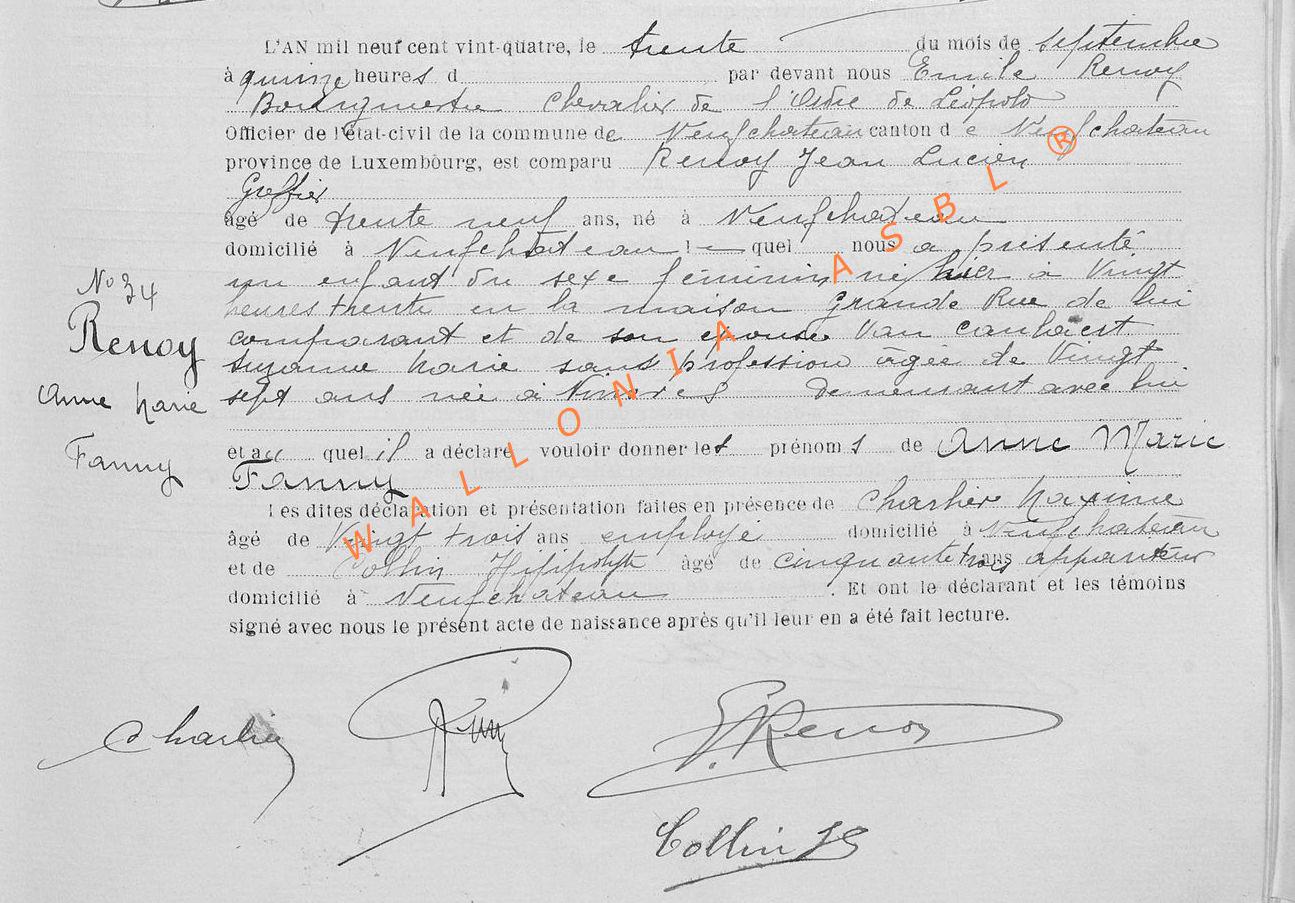 L'AN mil neuf cent vint-quatre, le trente du mois de septembre
à quinze heures d par devant nous Emile Renoy
Bourgmestre Chevalier de l'Ordre de Léopold
Officier de l'état-civil de la commune de Neufchateau canton de Neufchateau
province de Luxembourg, est comparu Renoy Jean Lucien
Greffier
âgé de trente neuf ans, né à Neufchateau
domicilié à Neufchateau lequel nous a présenté
un enfant du sexe féminin né hier à Vingt
heures trente en la maison Grande Rue de lui
comparant et de son épouse Van
Suzanne Marie sans profession agée de Vingt
sept ans née à demeurant avec lui
et au quel il a déclaré vouloir donner les prénoms de Anne Marie
Fanny
Les dites déclaration et présentation faites en présence de Charlier Maxime
âgé de Vingt trois ans employé domicilié à Neufchateau
et de Collin Hippolyte âgé de cinquante trois ans appariteur
domicilié à Neufchateau. Et ont le déclarant et les témoins
signé avec nous le présent acte de naissance après qu'il leur en a été fait lecture.
No 34
Renoy
Anne Marie
Fanny
Charlier
E. Renoy
Collin
WALLONIA ASBL ®